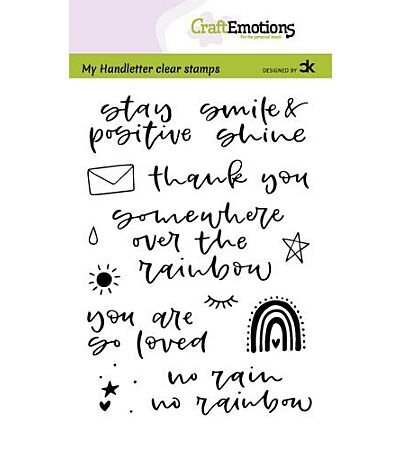 CraftEmotions
for the personal touch
My Handletter clear stamps
DESIGNED BY CK
stay smile &
positive shine
thank you
somewhere
over the
rainbow
you are
so loved
no rain
no rainbow